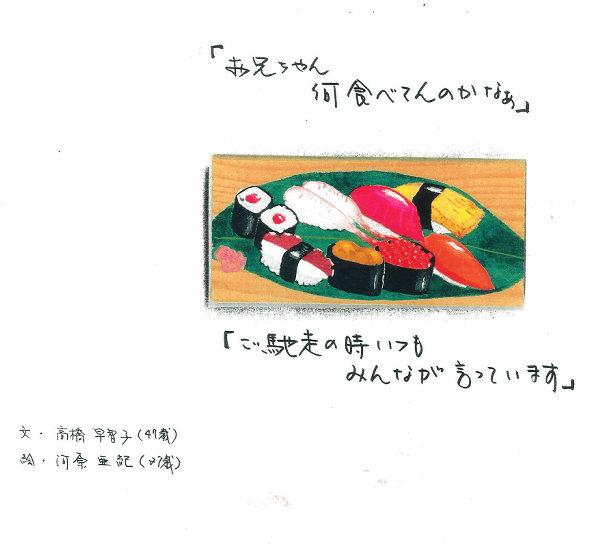 「お兄ちゃん
何食べてんのかなぁ」
「ご馳走の時いつも
みんなが言っています」
文・高橋早智子(49歳)
絵・河原亜紀(27歳)